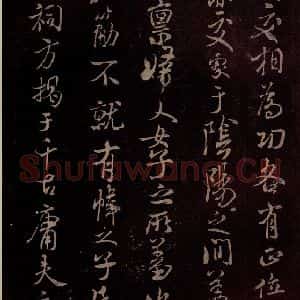 交相為功各有正位
交象于陰陽之間
禀婦人女子之所
筋不就有幃之子
祠方揭于千古庸夫
Shufawang.CN